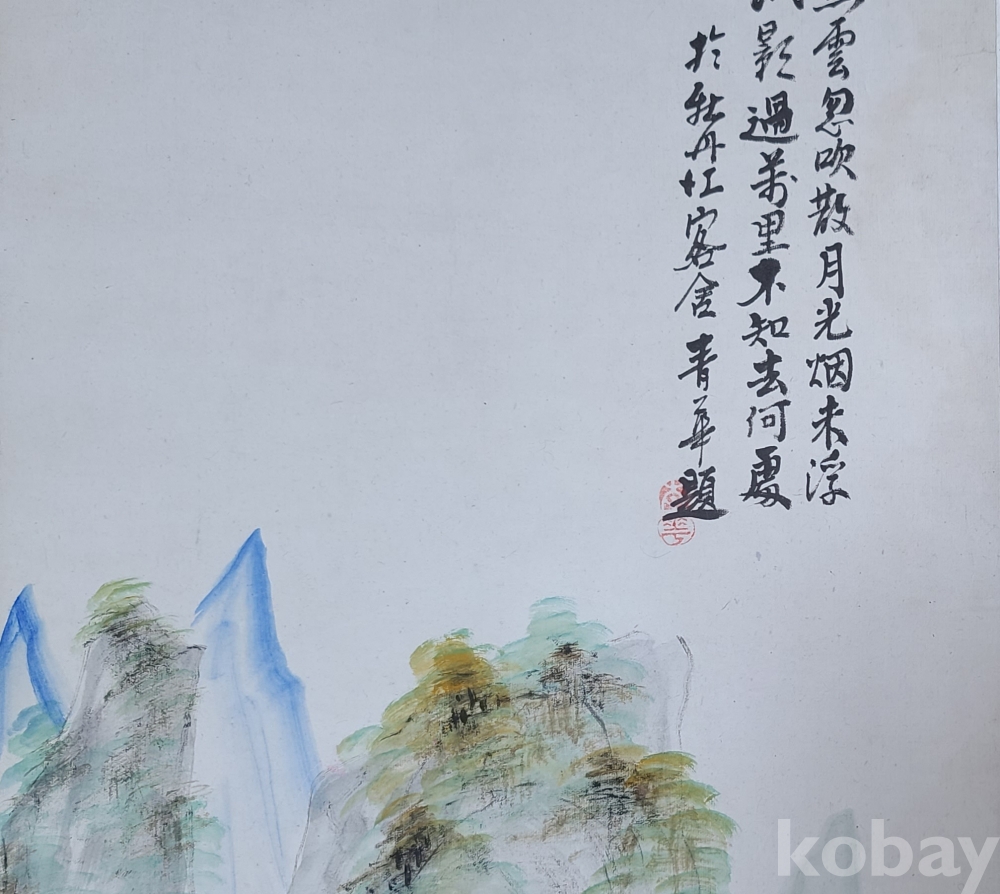 雲忽吹散月光烟未浮
影過萬里不知去何處
於牡丹江客舍 青華題
kobay